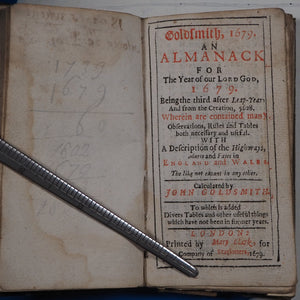 1739
1679
Goldsmith, 1679.
AN
ALMANACK
FOR
The Year of our LORD GOD,
1679.
Being the third after Leap-Year:
And from the Creation,
Wherein are contained many
Observations, Rules and Tables
both necessary and useful.
WITH
A Description of the Highways,
and Fairs in
ENGLAND and WALES.
The like not extant in any other.
Calculated by
JOHN GOLDSMITH.
To which is added
Divers Tables and other useful things
which have not been in former years.
LONDON:
Printed by Mary Clark, for
Company of Stationers, 1679.